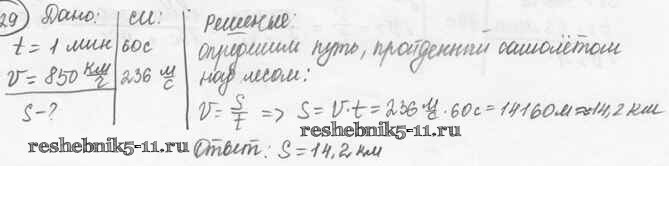 29 Дано: СИ: Решение:
t = 1 мин 60с Определим путь, пройденный самолётом
V = 850 км/ч 236 м/с над лесом:
S - ? V = S/t => S = V·t = 236 м/с · 60с = 14160м ≈ 14,2 км
reshebnik5-11.ru
reshebnik5-11.ru
Ответ: S = 14,2 км